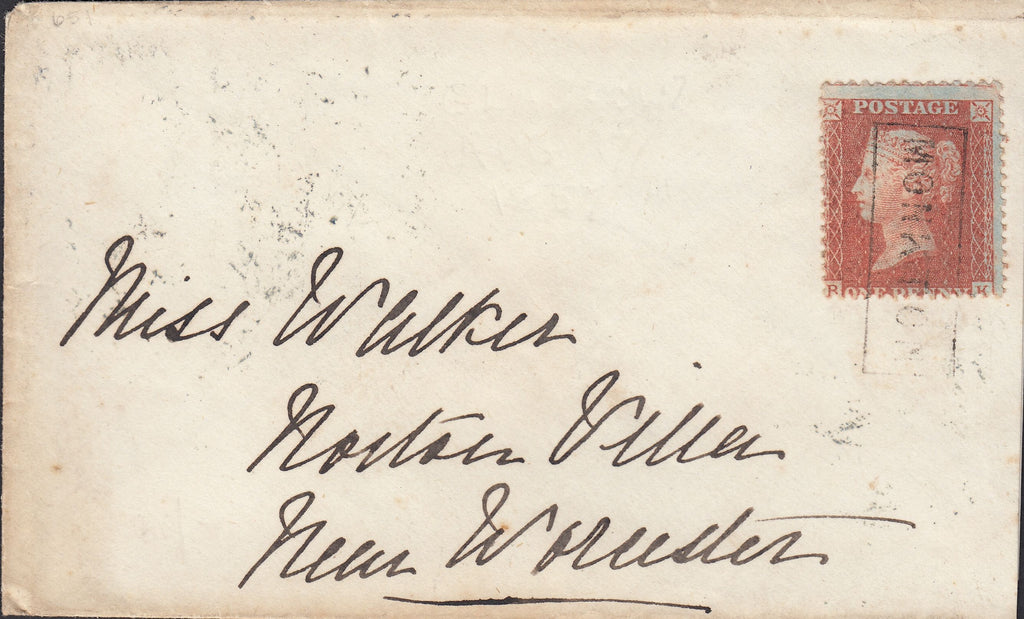 651
POSTAGE
R ONE PENNY K
Miss Walker
Norton Villa
Near Worcester